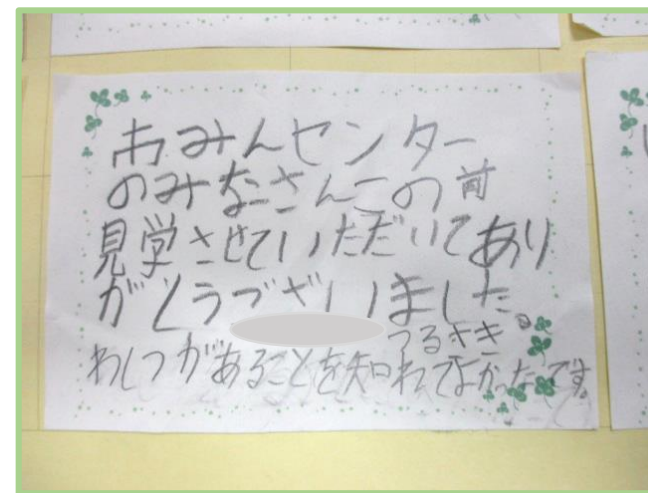 市みんセンター
のみなさんこの前
見学させていただいてあり
がとうございました。
つるさき
わしつがあることを知れてよかったです。